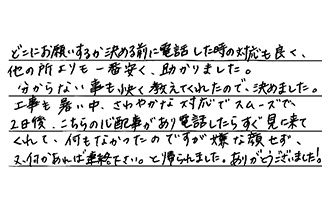 どこにお願いするか決める前に電話した時の対応も良く、
他の所よりも一番安く、助かりました。
分からない事も快く教えてくれたので、決めました。
工事も暑い中、さわやかな対応でスムーズで、
2日後、こちらの心配事があり電話したらすぐ見に来て
くれて、何もなかったのですが嫌な顔せず、
又、何かあれば連絡下さい。と帰られました。ありがとうございました!